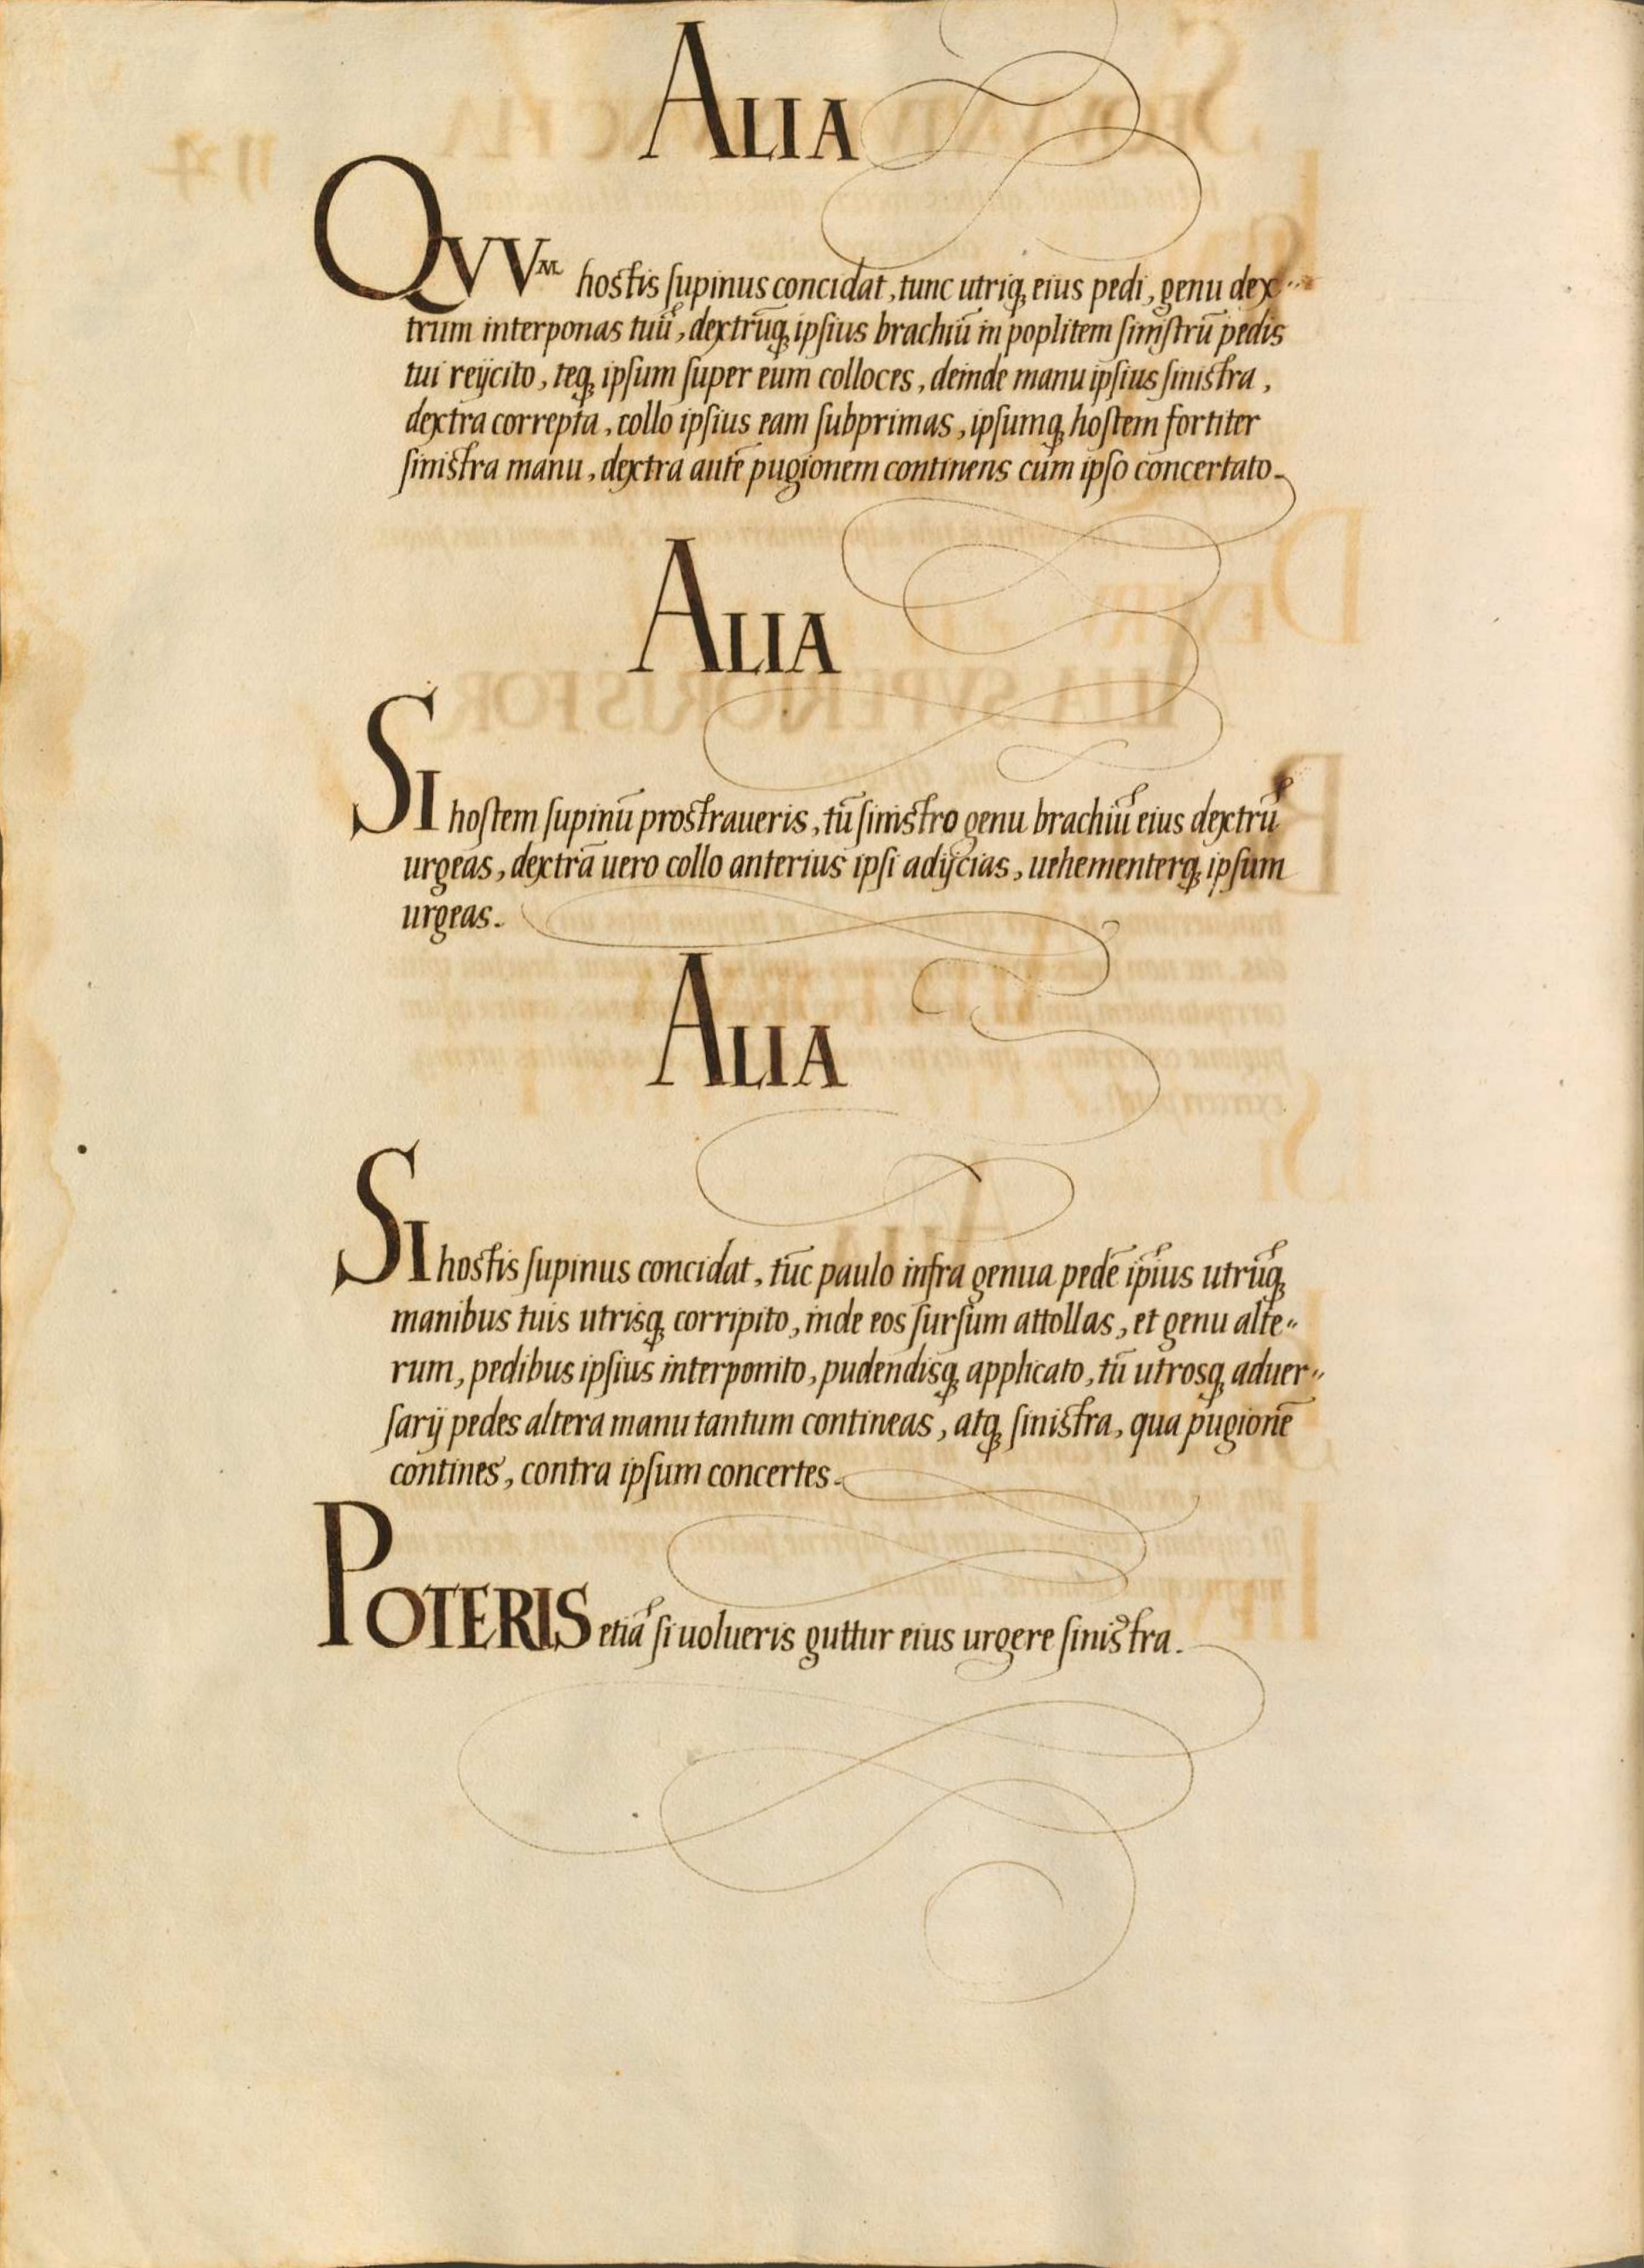 ALIA
QVVM hostis supinus concidat, tunc utriq; eius pedi, genu dex-
trum interponas tuū, dextrūq; ipsius brachiū in poplitem sinistrū pedis
tui reijcito, teq; ipsum super eum colloces, deinde manu ipsius sinistra,
dextra correpta, collo ipsius eam subprimas, ipsumq; hostem fortiter
sinistra manu, dextra autē pugionem continens cum ipso concertato.
ALIA
SI hostem supinū prostraueris, tū sinistro genu brachiū eius dextrū
urgeas, dextrā uero collo anterius ipsi adijcias, uehementerq; ipsum
urgeas.
ALIA
SI hostis supinus concidat, tūc paulo infra genua pedē ipīus utrūq;
manibus tuis utrisq; corripito, inde eos sursum attollas, et genu alte-
rum, pedibus ipsius interponito, pudendisq; applicato, tū utrosq; aduer-
sarij pedes altera manu tantum contineas, atq; sinistra, qua pugionē
contines, contra ipsum concertes.
POTERIS etiā si uolueris guttur eius urgere sinistra.